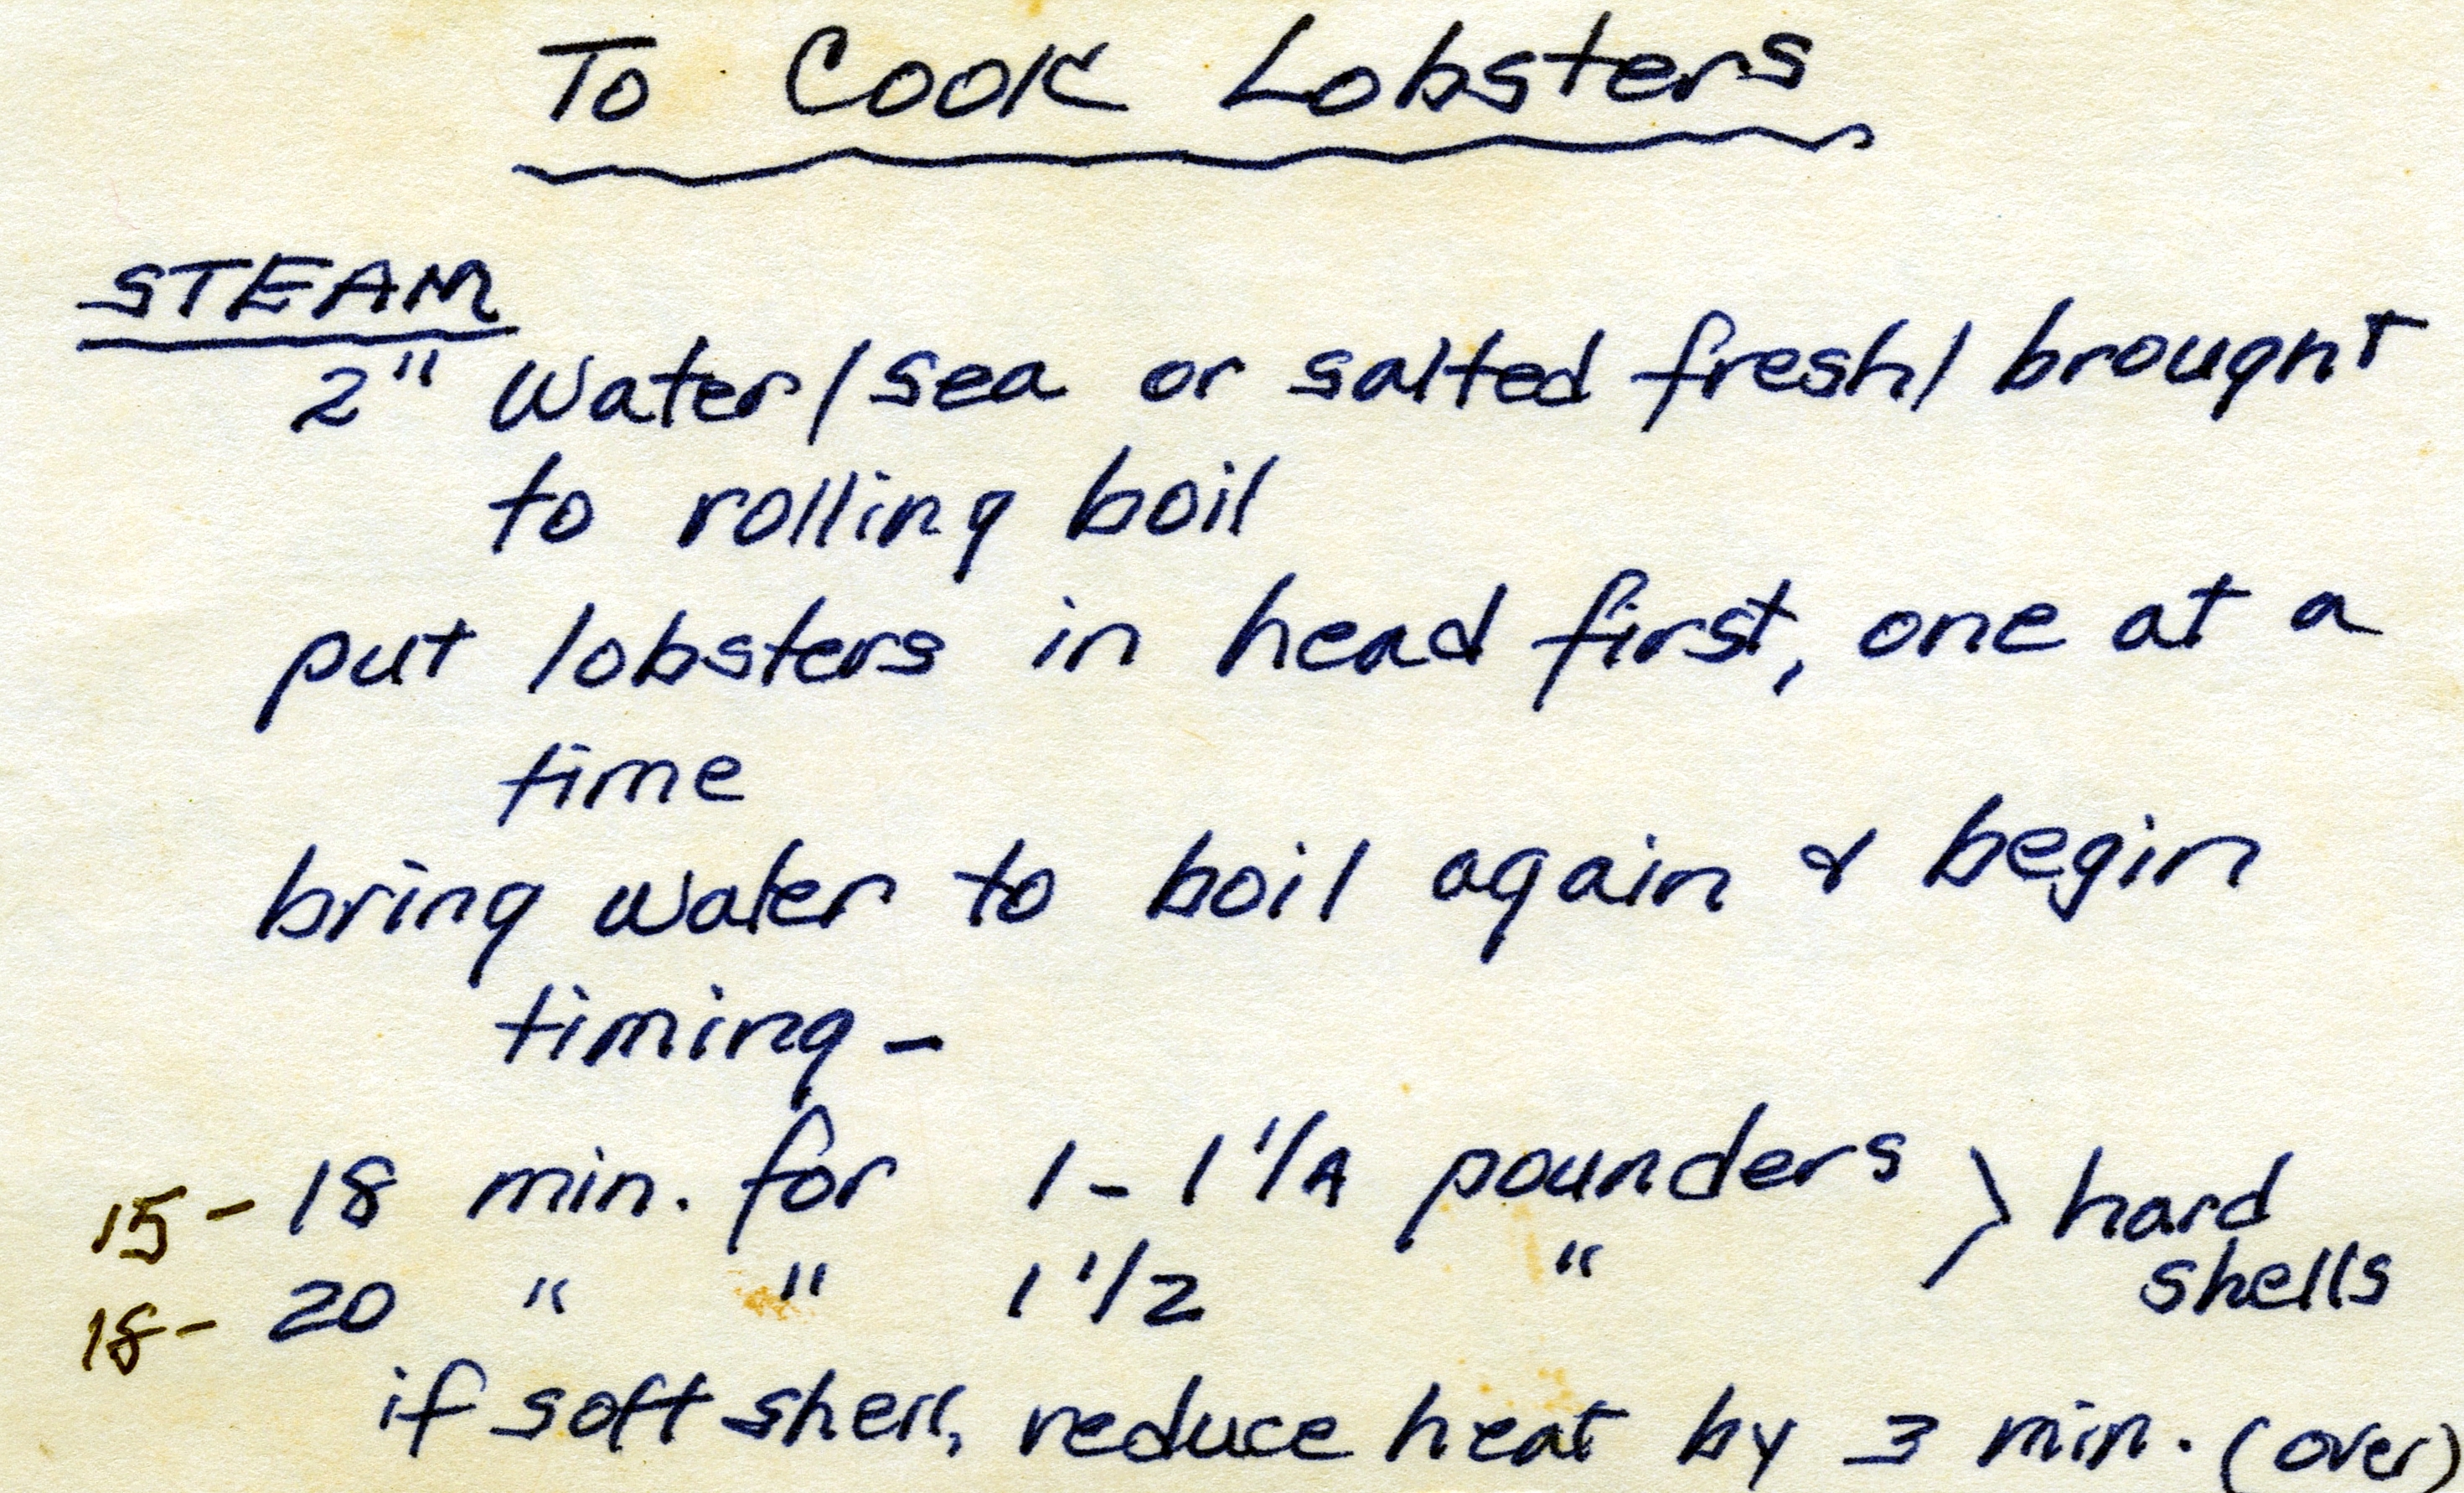 To Cook Lobsters
STEAM
2" Water/sea or salted fresh/ brought
to rolling boil
put lobsters in head first, one at a
time
bring water to boil again & begin
timing-
15- 18 min. for 1-1 1/4 pounders } hard
shells
18- 20 " " 1 1/2 "
if soft shell, reduce heat by 3 min. (over)